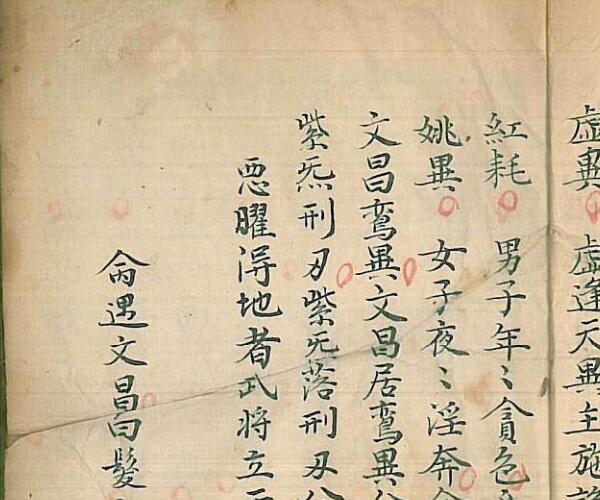 虛異 虛逢天異主施
紅耗 男子年〻貪色
姚異 女子夜〻淫奔
文昌鸞異文昌居鸞異
紫炁刑刃紫炁落刑刃
惡曜淂地者武將立
向遇文昌白髮